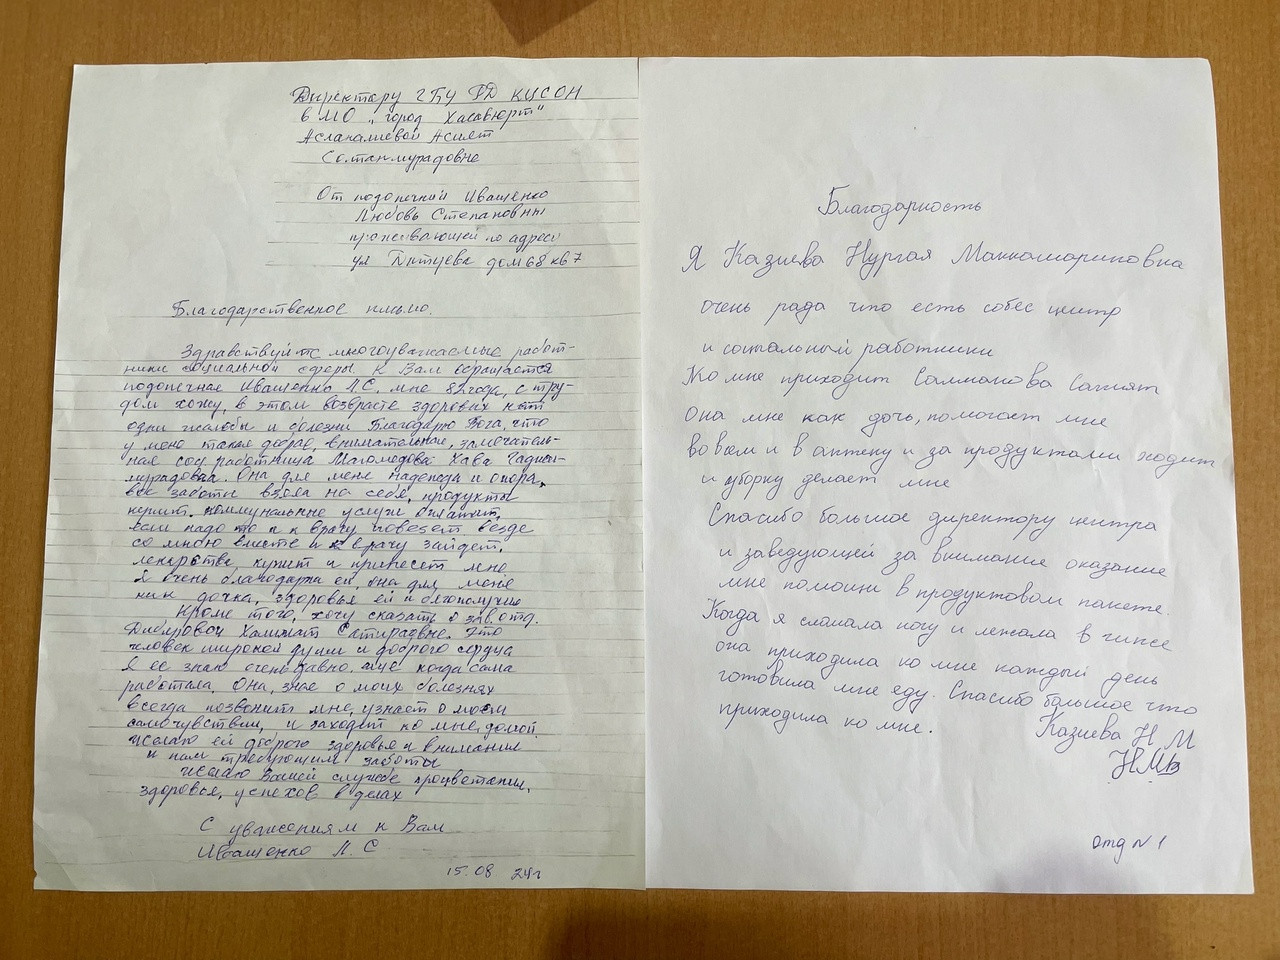 Директору ГБУ РД КЦСОН
в МО "город Хасавюрт"
Асланалиевой Асият
Солтанмурадовне
От подопечный Иващенко
Любовь Степановны
проживающей по адресу
ул дом 68 кв 7
Благодарственное письмо.
Здравствуйте многоуважаемые работ-
ники социальной сферы к Вам обращается
подопечная Иващенко Л.С. мне 82 года, с тру-
дом хожу, в этом возрасте здоровых нет
одни жалобы и болезни Благодарю Бога, что
у меня такая добрая, внимательная, замечатель-
ная соц работница Магомедова Хава Гаджи-
мурадовна. Она для меня надежда и опора,
все заботы взяла на себя, продукты
купит, коммунальные услуги оплатит,
если надо то и к врачу повезет везде
со мною вместе и к врачу зайдет,
лекарства, купит и принесет мне
Я очень благодарна ей, она для меня
как дочка, здоровья ей и благополучия
Кроме того, хочу сказать о зав.отд.
Это
человек широкой души и доброго сердца
Я ее знаю очень давно, еще когда сама
работала. Она, зная о моих болезнях
всегда позвонит мне, узнает о моем
самочувствии, и заходит ко мне домой
желаю ей доброго здоровья и внимания
к нам требующим заботы
желаю Вашей службе процветания,
здоровья, успехов в делах
С уважениям к Вам
Иващенко Л. С
15.08 24г
Благодарность
Я Казиева Нургая
очень рада что есть собес центр
и социальный работники
Ко мне приходит Салманова Сапият
Она мне как дочь, помогает мне
во всем и в аптеку и за продуктами ходит
и уборку делает мне
Спасибо большое директору центра
и заведующей за внимание оказание
мне помощи в продуктовом пакете.
Когда я сламала ногу и лежала в гипсе
она приходила ко мне каждый день
готовила мне еду. Спасибо большое что
приходила ко мне.
Казиева Н М
отд N 1